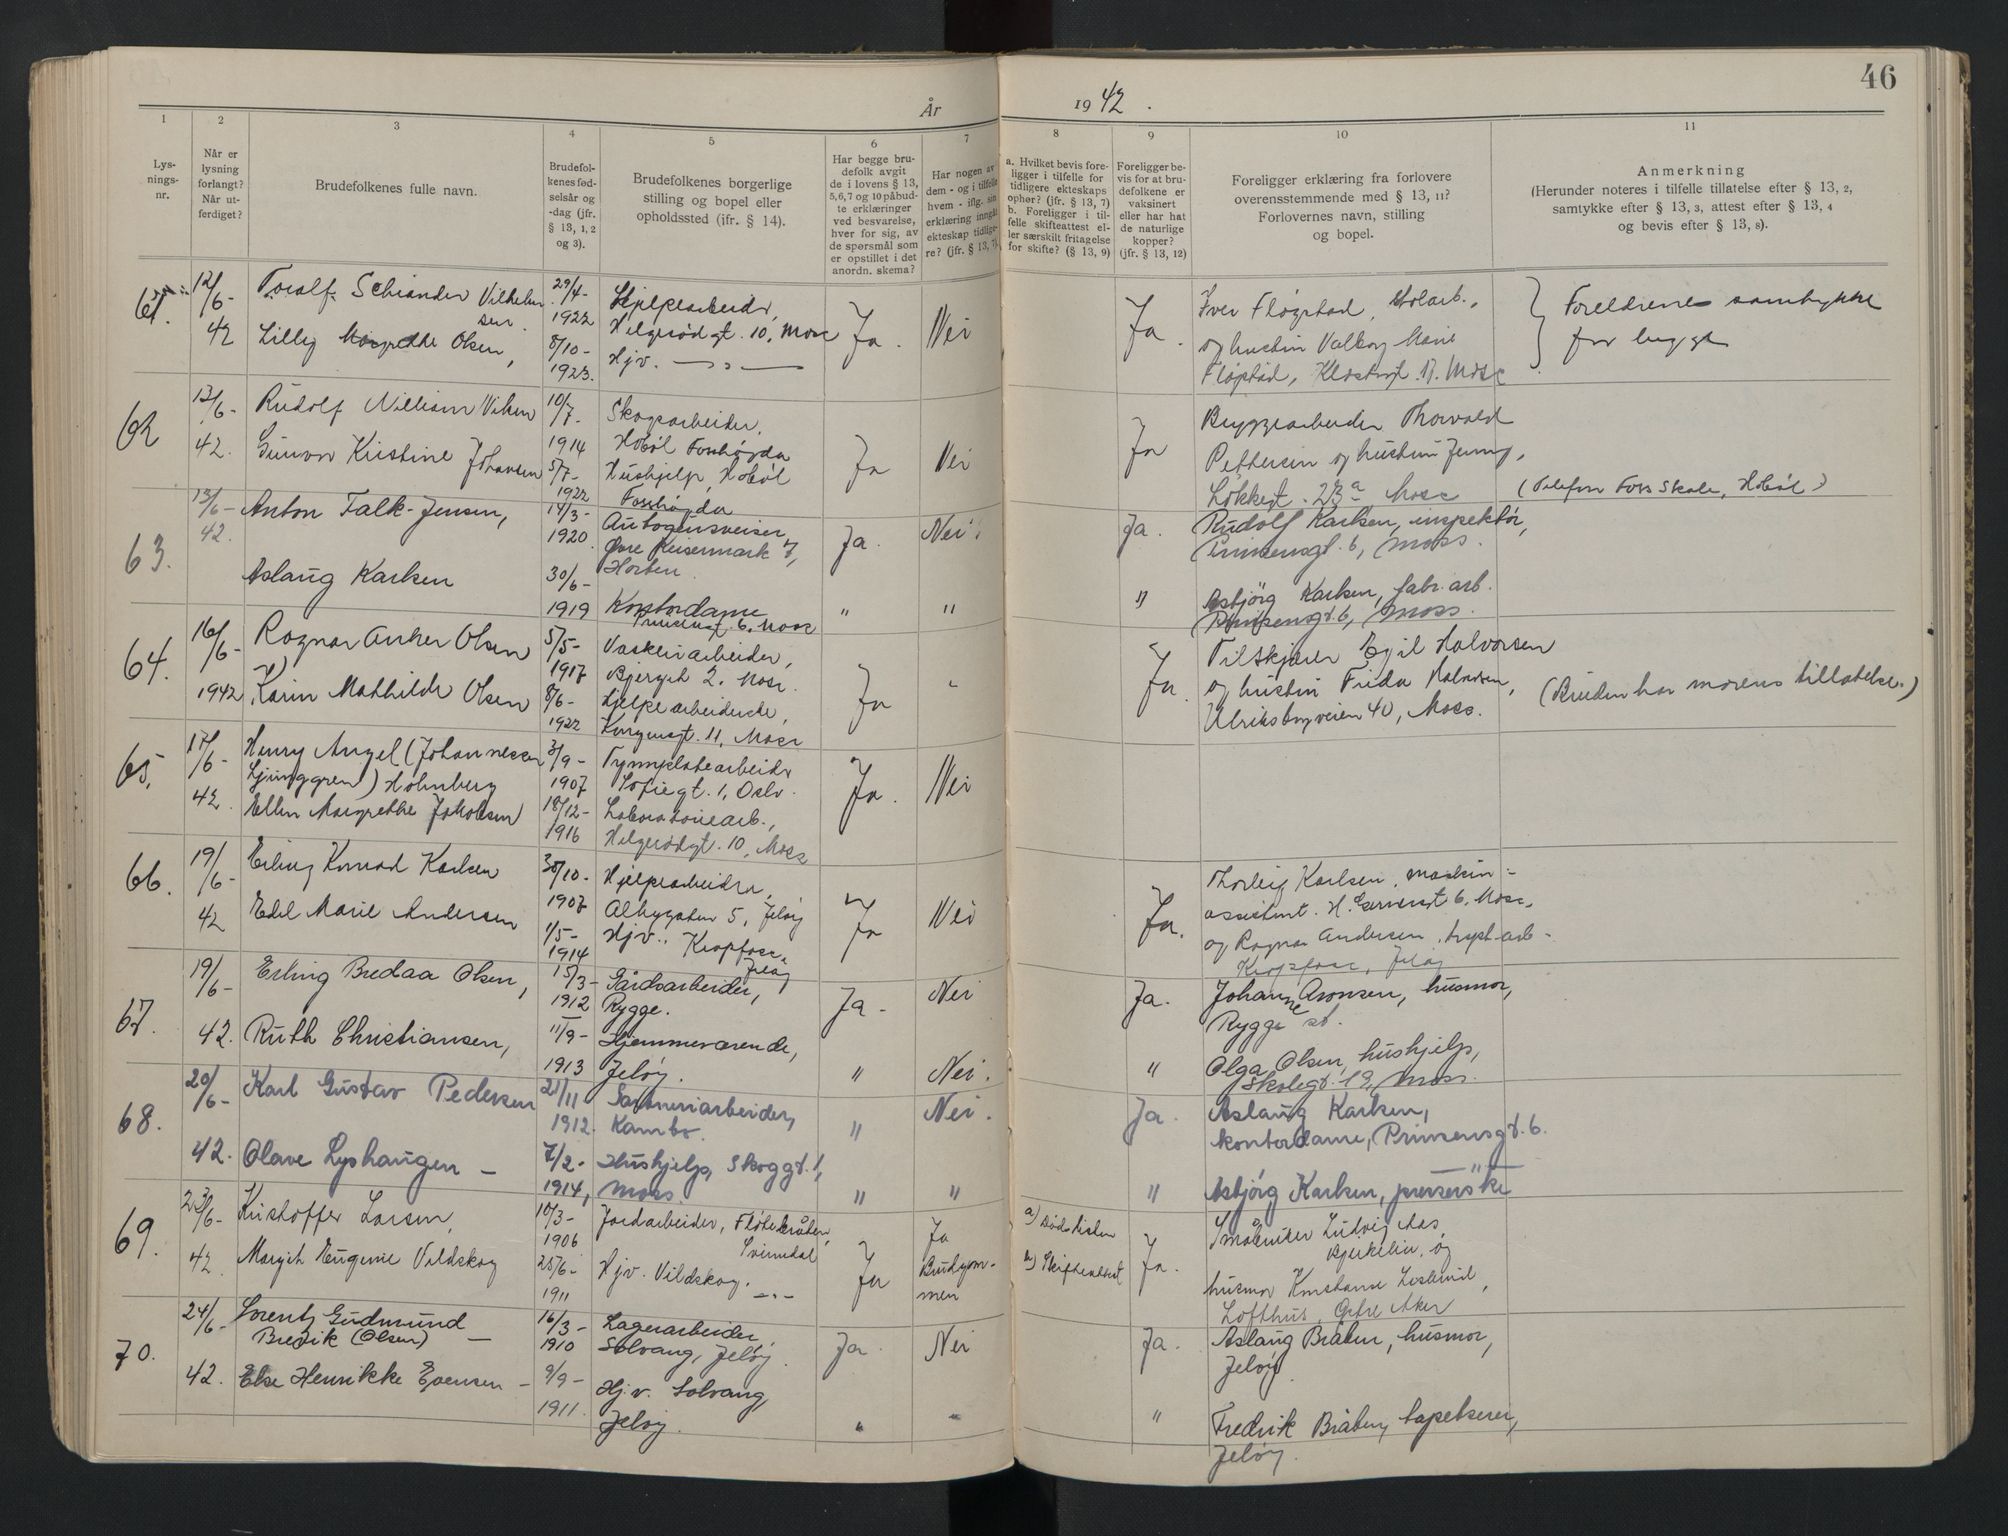 46
År 1942.
1 2 3 4 5 6 7 8 9 10 11
Lys-
nings-
nr.
Når er
lysning
forlangt?
Når ut-
ferdiget?
Brudefolkenes fulle navn.
Brudefol-
kenes fød-
selsår og
-dag (jfr.
§ 13, 1, 2
og 3).
Brudefolkenes borgerlige
stilling og bopel eller
opholdssted (ifr. § 14).
Har begge bru-
defolk avgit
de i lovens § 13,
5,6,7 og 10 påbud-
te erklæringer
ved besvarelse,
hver for sig, av
de spørsmål som
er opstillet i det
anordn. skema?
Har nogen av
dem - og i tilfelle
hvem - iflg. sin
erklæring inngått
ekteskap tidlige-
re? (jfr. § 13, 7).
a. Hvilket bevis fore-
ligger i tilfelle for
tidligere ekteskaps
ophør? (jfr. § 13, 7)
b. Foreligger i til-
felle skifteattest el-
ler særskilt fritagelse
for skifte? (§ 13, 9)
Foreligger be-
vis for at bru-
defolkene er
vaksinert
eller har hat
de naturlige
kopper?
(jfr. § 13, 12)
Foreligger erklæring fra forlovere
overensstemmende med § 13, 11?
Forlovernes navn, stilling
og bopel.
Anmerkning
(Herunder noteres i tilfelle tillatelse efter § 13, 2,
samtykke efter § 13, 3, attest efter § 13, 4
og bevis efter § 13, 8).
61.
12/6-
42
Toralf Schiander Vilhelm
sen.
Lilly Margrethe Olsen,
29/4-
1922
8/10-
1923.
Hjelpearbeider,
Helgerødgt. 10, Moss
Hjv. — " —
Ja.
Nei
Ja.
Iver Fløgstad,
og hustru Valborg Marie
Fløgstad, Klostergt. 17. Moss
Foreldrenes samtykke
for begge
62
13/6-
42.
Rudolf William Viken
Gunvor Kristine Johansen
10/7-
1914
5/7-
1922
Skogsarbeider,
Hobøl Fosshøgda
Hushjelp, Hobøl
Fosshøgda
Ja
Nei
Ja
Bryggearbeider Thorvald
Pettersen og hustru Jenny,
Løkkegt. 23a Moss
(Telefon Foss Skole, Hobøl)
63.
13/6-
42.
Anton Falk-Jensen,
Aslaug Karlsen
14/3-
1920.
30/6-
1919
Autogensveiser,
Øvre Keisermark 7,
Horten.
Kontordame
Prinsensgt. 6, Moss
Ja.
"
Nei.
"
Ja.
"
Rudolf Karlsen, inspektør,
Prinsensgt. 6, Moss.
Asbjörg Karlsen, fabr. arb.
Prinsensgt. 6, Moss.
64.
16/6-
1942
Ragnar Anker Olsen
Karin Mathilde Olsen
5/5-
1917
8/6-
1922
Vaskeriarbeider,
Bjergst 2. Moss.
Hjelpearbeiderske,
Kongensgt. 11, Moss
Ja
"
Ja.
Filskjærer Egil Halvorsen
og hustru Frida Halvorsen,
Ulriksborgveien 40, Moss.
(Bruden har morens tillatelse.)
65.
17/6-
42.
Henry Angel (Johannessen
Ljunggren) Holmberg
Ellen Margrethe Jakobsen
3/9-
1907
18/12-
1916
Tynnplatearbeider
Sofiegt. 1, Oslo.
Laboratoriearb.,
Helgerødgt. 10, Moss
Ja.
Nei
66.
19/6-
42
Erling Konrad Karlsen
Edel Marie Andersen
30/10-
1907
1/5-
1914
Hjelpearbeider,
Albygaten 5, Jeløy
Hjv., Kropfoss,
Jeløy
Ja
Nei
Ja.
Thorleif Karlsen, maskin-
assistent. H. Gernersgt 6, Moss,
og Ragnar Andersen,
Kropfoss, Jeløy
67.
19/6-
42.
Erling Bredaa Olsen,
Ruth Christiansen,
15/3-
1912
11/9-
1913
Gårdsarbeider,
Rygge.
Hjemmeværende,
Jeløy.
Ja -
"
Nei
Nei.
Ja.
"
Johanne Aronsen, husmor,
Rygge st.
Olga Olsen, hushjelp,
Skolegt. 19, Moss.
68.
20/6-
42.
Karl Gustav Pedersen
Olave Lyshaugen —
21/11
1912.
7/2-
1914,
Gartneriarbeider,
Kambo.
Hushjelp, Skoggt. 1,
Moss.
"
"
Nei.
"
Ja.
"
Aslaug Karlsen,
kontordame, Prinsensgt. 6.
Asbjörg Karlsen, presserske
— " —
69.
23/6-
42
Kristoffer Larsen,
Margit Eugenie Vildskog
10/3-
1906
25/6-
1911
Jordarbeider, Fløtebråten,
Svinndal
Hjv. Vildskog.
— " —
Ja
Ja
Brudgom-
men
a) Dødslisten
b) Skifteattest
Ja.
Småbruker Ludvig Aas,
Bjerkelia, og
husmor Konstanse
Lofthus, Aker
70.
24/6-
42.
Lorentz Gudmund
Bredik (Olsen) —
Else Henrikke Evensen —
16/3-
1910
9/9-
1911.
Lagerarbeider,
Solvang, Jeløy.
Hj.v. Solvang
Jeløy.
Ja
"
Nei
"
Ja.
"
Aslaug Bråten, husmor,
Jeløy.
Fredrik Bråten, tapetserer,
Jeløy.